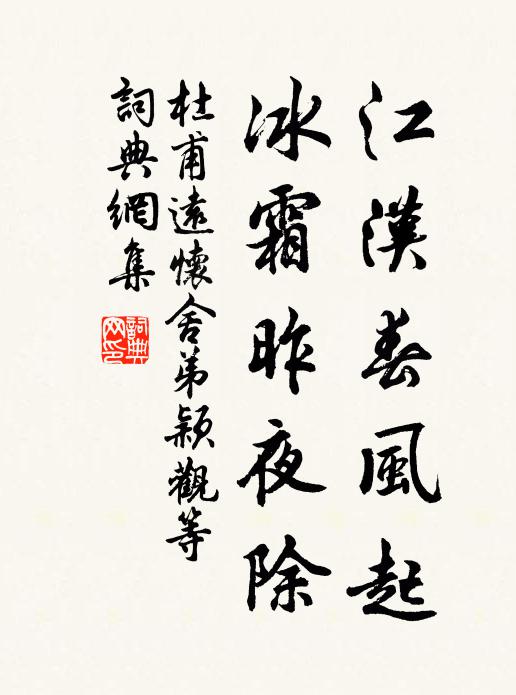 江漢春風起
冰霜昨夜除
杜甫遠懷舍弟穎觀等
詞典網集
詞典
网印